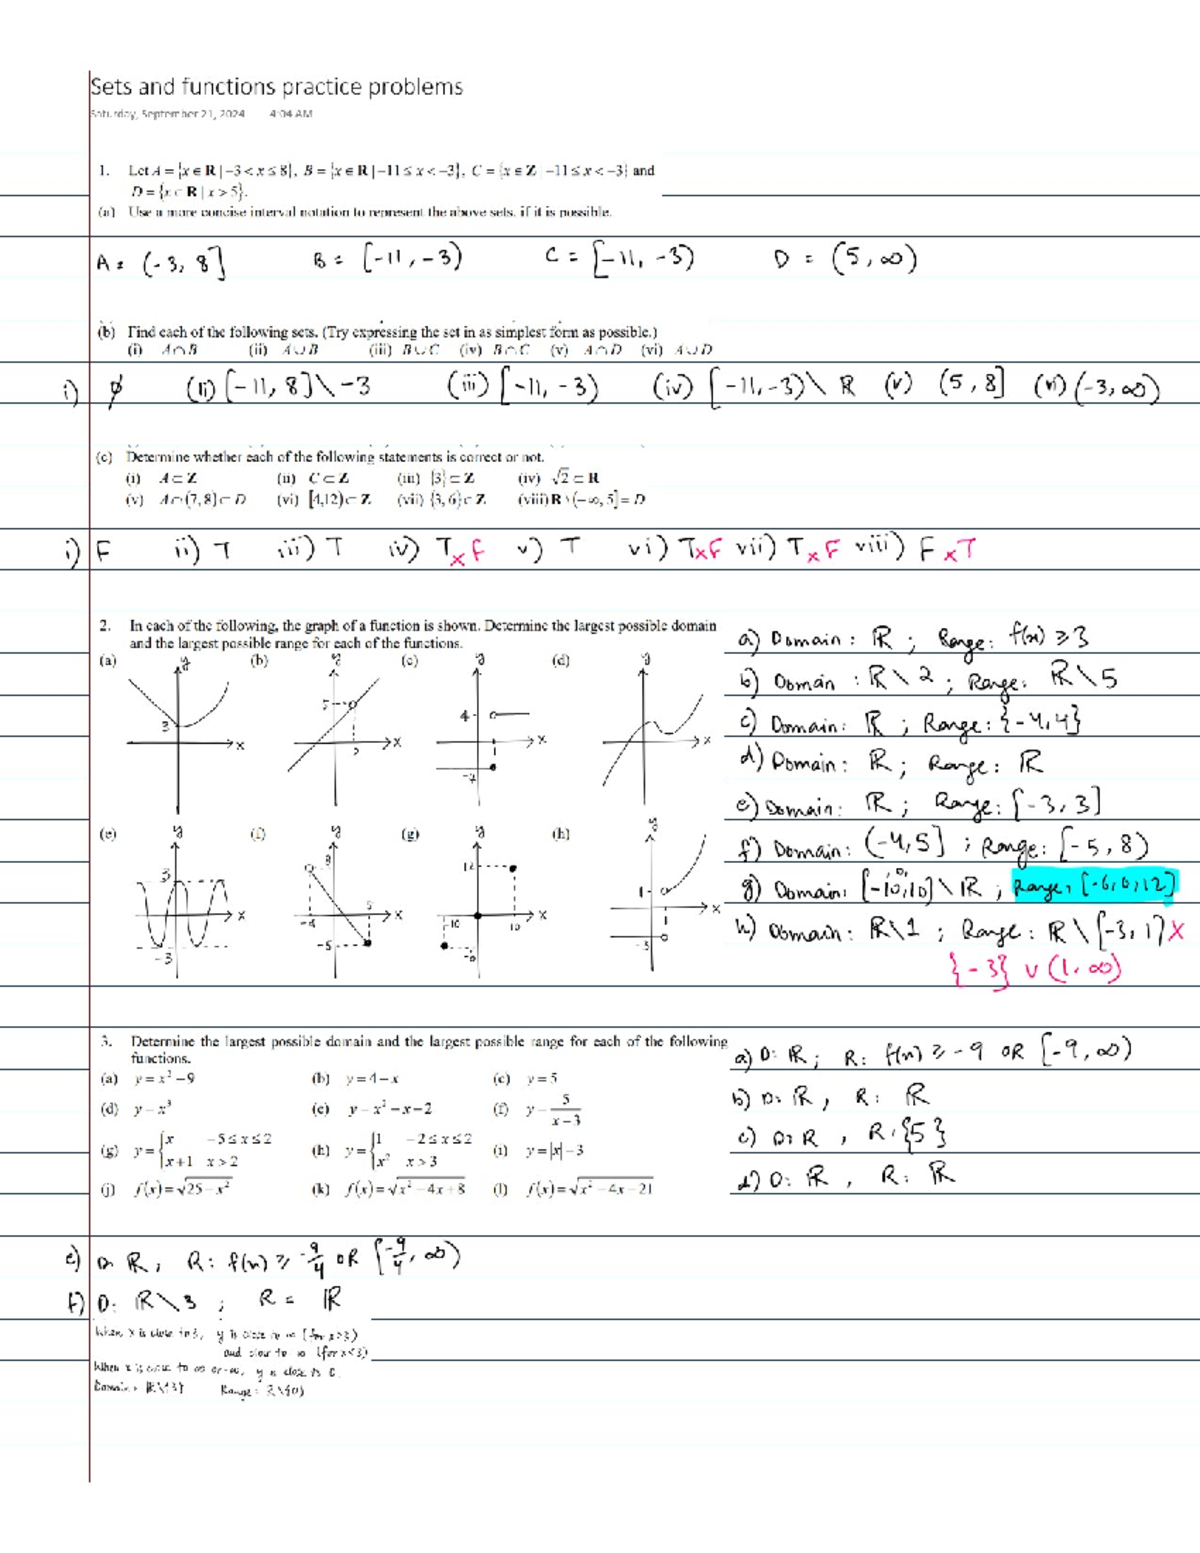 Sets and functions practice problems
Saturday, September 21, 2024 4:04 AM
1. Let A = {x ∈ R | −3 < x ≤ 8}, B = {x ∈ R | −11 ≤ x < −3}, C = {x ∈ Z | −11 ≤ x < −3} and
D = {x ∈ R | x > 5}.
(a) Use a more concise interval notation to represent the above sets, if it is possible.
A = (-3, 8] B = [-11, -3) C = [-11, -3) D = (5, ∞)
(b) Find each of the following sets. (Try expressing the set in as simplest form as possible.)
(i) A∩B (ii) A∪B (iii) B∪C (iv) B∩C (v) A∩D (vi) A∪D
i) ∅ (ii) [-11, 8] \ -3 (iii) [-11, -3) (iv) [-11, -3) \ R (v) (5, 8] (vi) (-3, ∞)
(c) Determine whether each of the following statements is correct or not.
(i) A ⊂ Z (ii) C ⊂ Z (iii) {3} ⊂ Z (iv) √2 ⊂ R
(v) A∩(7,8) ⊂ D (vi) [4,12) ⊂ Z (vii) {3, 6} ⊂ Z (viii) R \ (−∞, 5] = D
i) F ii) T iii) T iv) T x F v) T vi) T x F vii) T x F viii) F x T
2. In each of the following, the graph of a function is shown. Determine the largest possible domain
and the largest possible range for each of the functions.
(a) (b) (c) (d)
y y y y
3 5 4
x 2 x x x
(e) (f) (g) (h)
y y y y
3 8 12 1
x -4 5 x -10 10 x x
-3 -5 -6 -3
a) Domain: R ; Range: f(x) ≥ 3
b) Domain : R \ 2 ; Range: R \ 5
c) Domain: R ; Range: {-4, 4}
d) Domain: R ; Range: R
e) Domain: R ; Range: [-3, 3]
f) Domain: (-4, 5] ; Range: [-5, 8)
g) Domain: [-10, 0, 10] \ R ; Range: [-6, 0, 12]
h) Domain: R \ 1 ; Range: R \ [-3, 1] x
{-3} ∪ (1, ∞)
3. Determine the largest possible domain and the largest possible range for each of the following
functions.
(a) y = x² − 9 (b) y = 4 − x (c) y = 5
(d) y = x³ (e) y = x² − x − 2 (f) y = 5/(x − 3)
(g) y = {x −5 ≤ x ≤ 2; x + 1 x > 2 (h) y = {1 −2 ≤ x ≤ 2; x² x > 3 (i) y = |x| − 3
(j) f(x) = √(25 − x²) (k) f(x) = √(x² − 4x + 8) (l) f(x) = √(x² − 4x − 21)
a) D: R ; R: f(x) ≥ -9 OR [-9, ∞)
b) D: R , R: R
c) D: R , R: {5}
d) D: R , R: R
e) D: R , R: f(x) ≥ -9/4 OR [-9/4, ∞)
f) D: R \ 3 ; R = R
When x is close to 3, y is close to ∞ (for x>3)
and close to ∞ (for x<3)
When x is close to ∞ or -∞, y is close to 0.
Domain: R\{3} Range: R\{0}